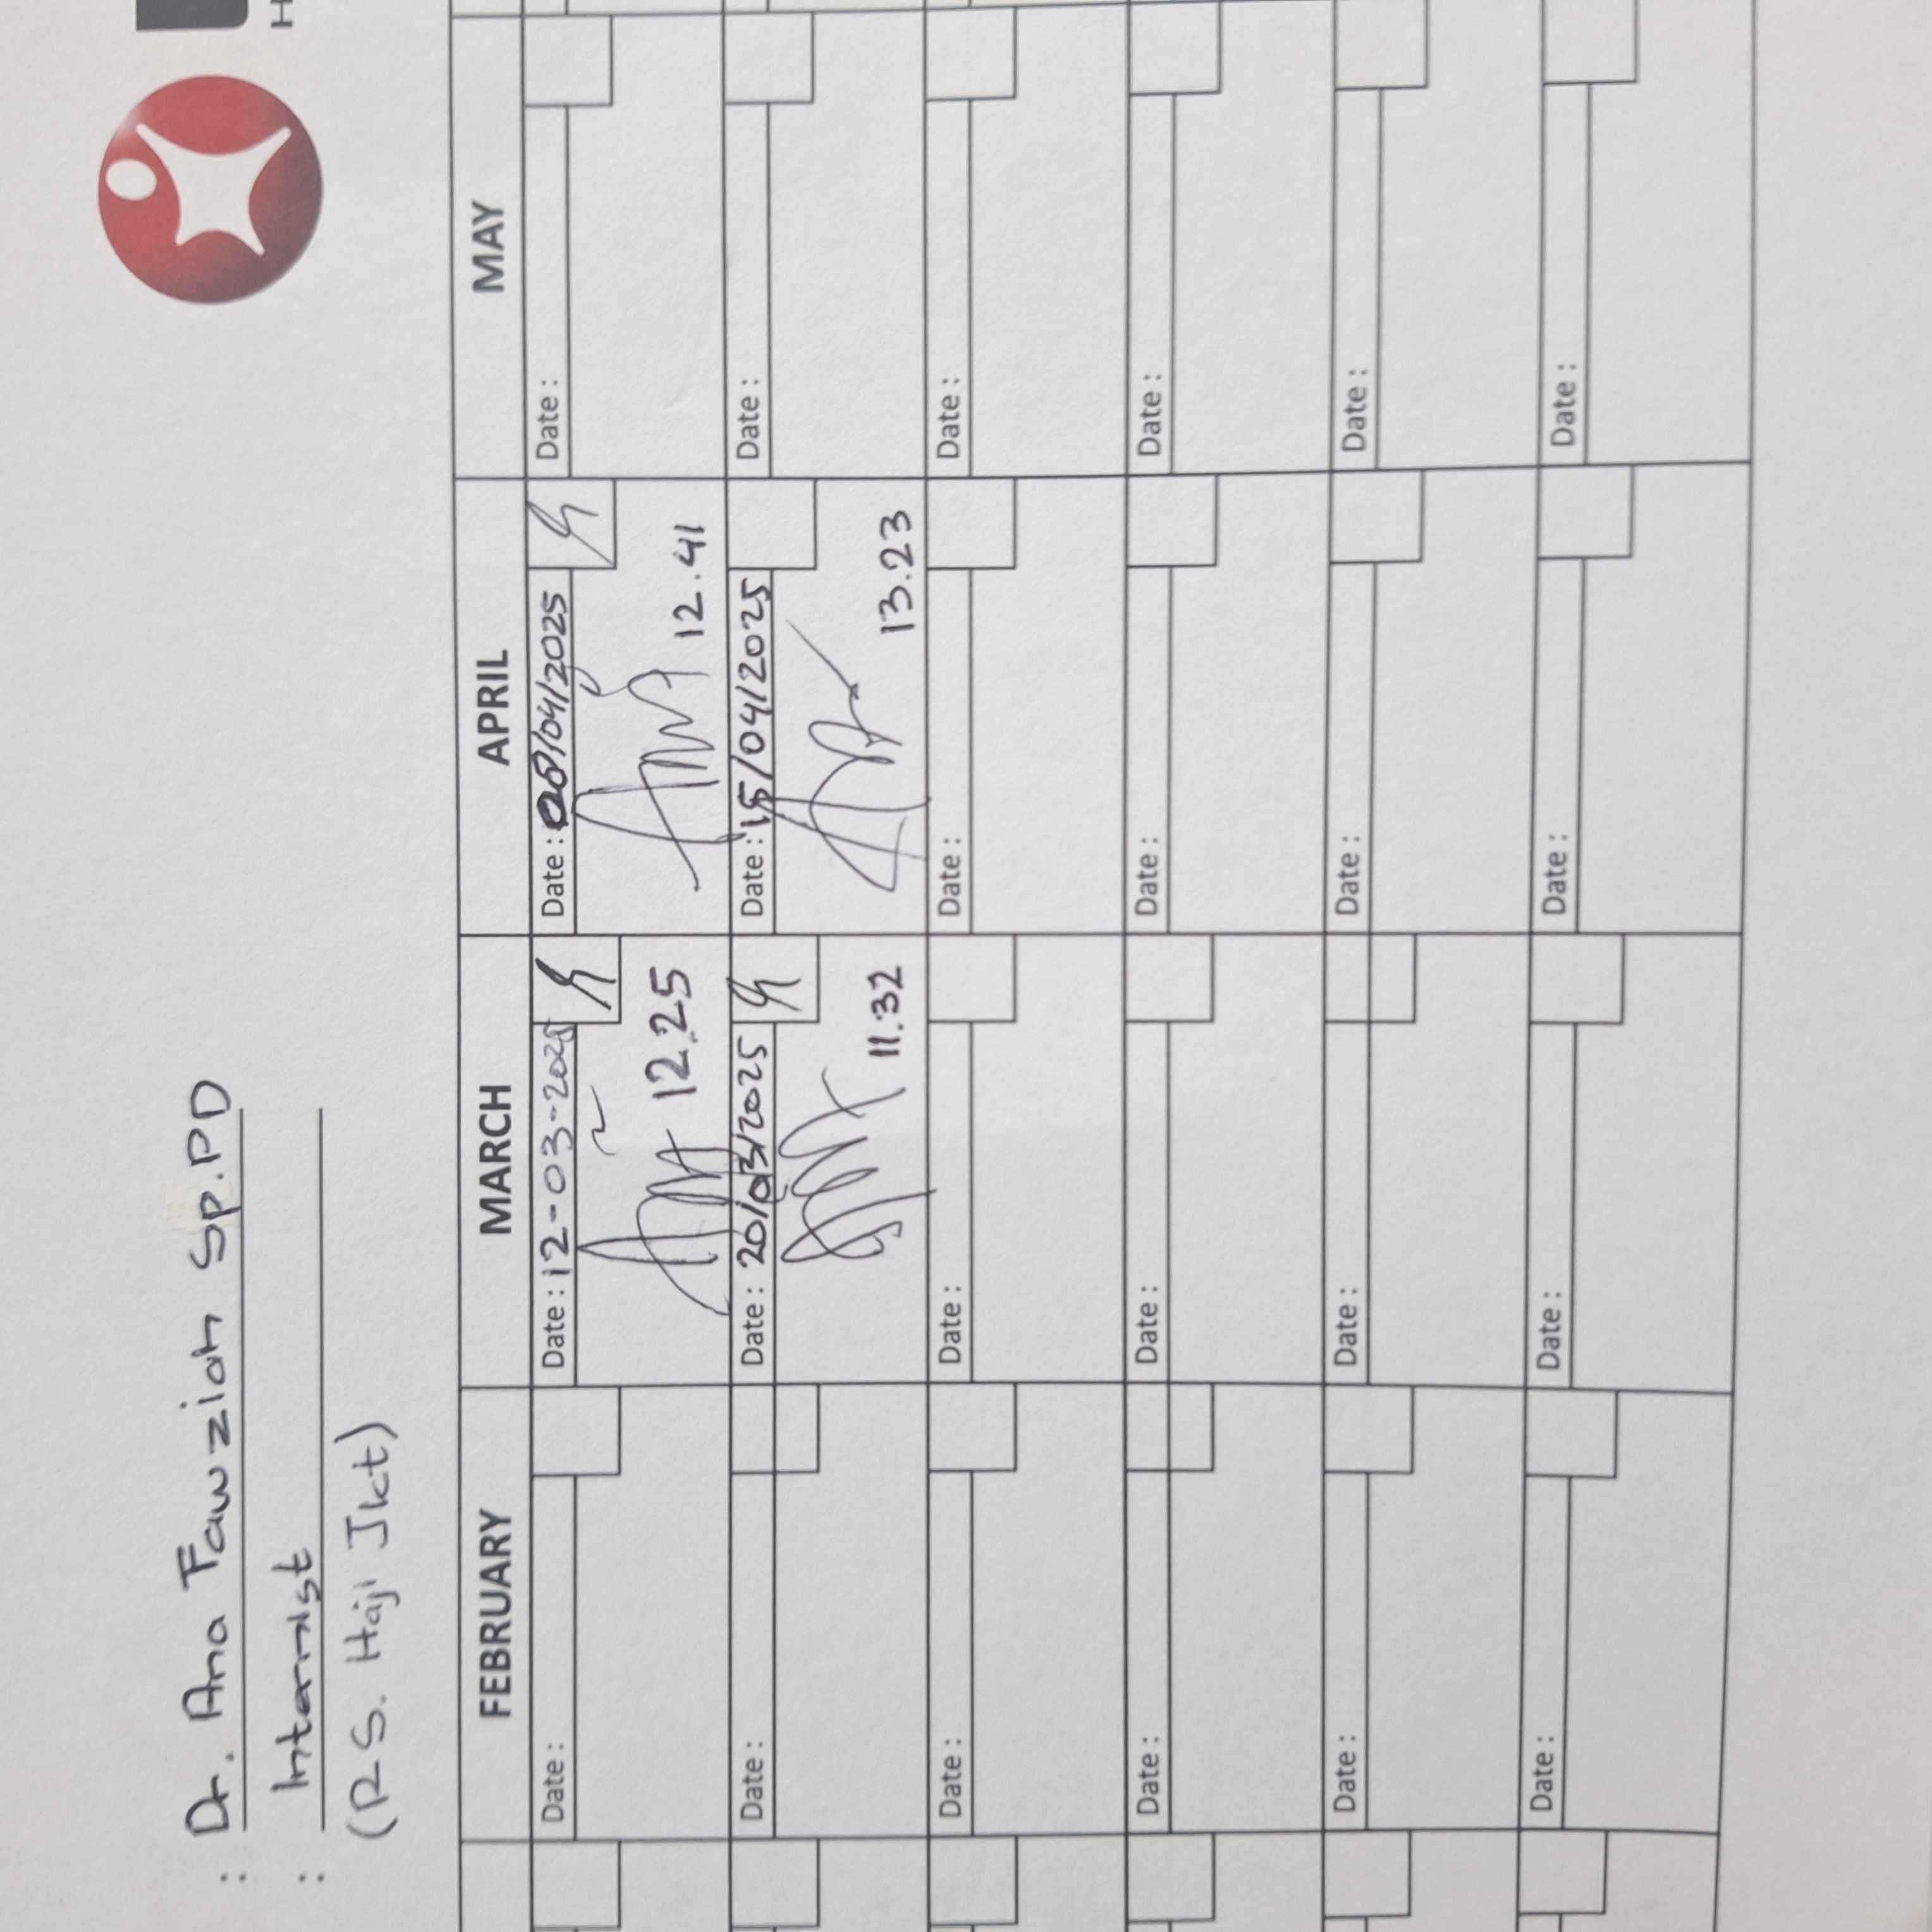 : Dr. Ana Fauziah Sp.PD
: Internist
(RS. Haji Jkt)
FEBRUARY MARCH APRIL MAY
Date : Date : 12-03-2025 Date : 08/04/2025 Date :
12.25 12.41
Date : Date : 20/03/2025 Date : 15/04/2025 Date :
11.32 13.23
Date : Date : Date : Date :
Date : Date : Date : Date :
Date : Date : Date : Date :
Date : Date : Date : Date :